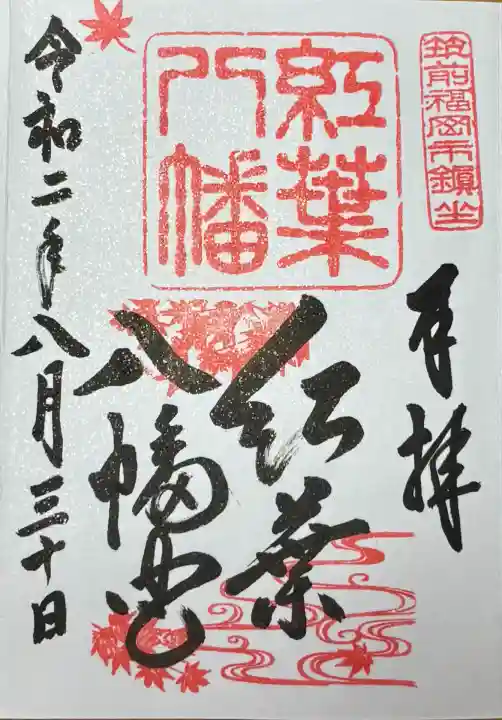 筑前福岡市鎮坐
奉拝
紅葉
八幡
紅葉
八幡宮
令和二年八月三十日